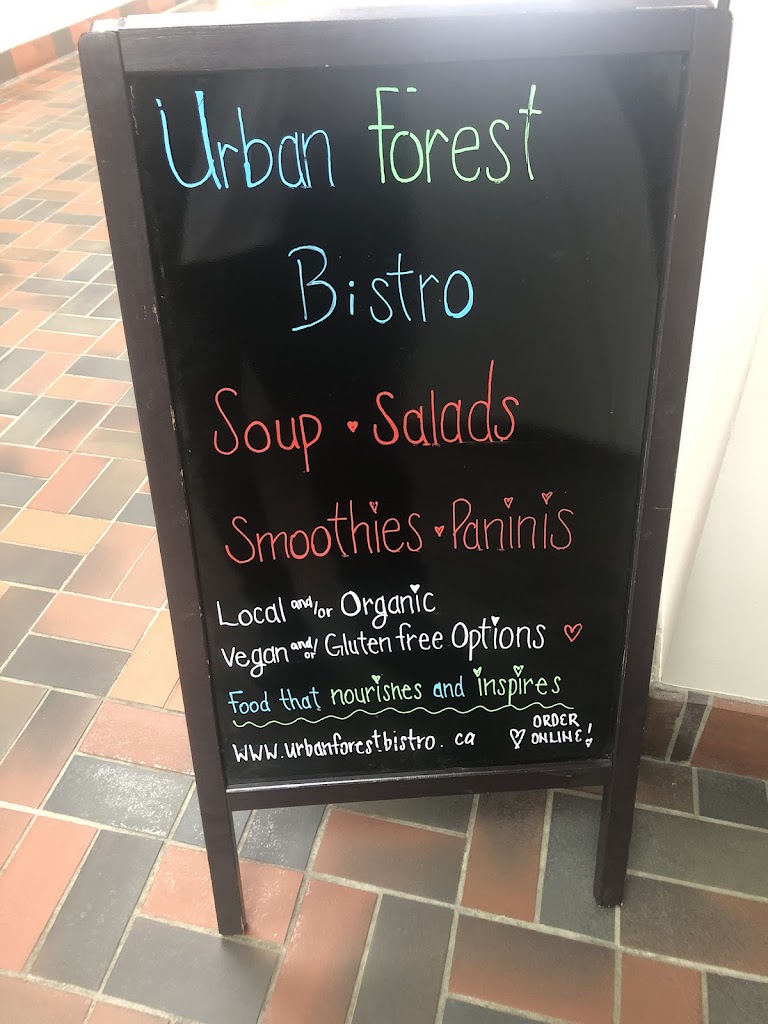 Urban Forest
Bistro
Soup • Salads
Smoothies • Paninis
Local and/or Organic
Vegan and/or Gluten free Options
Food that nourishes and inspires
www.urbanforestbistro.ca
ORDER
ONLINE!